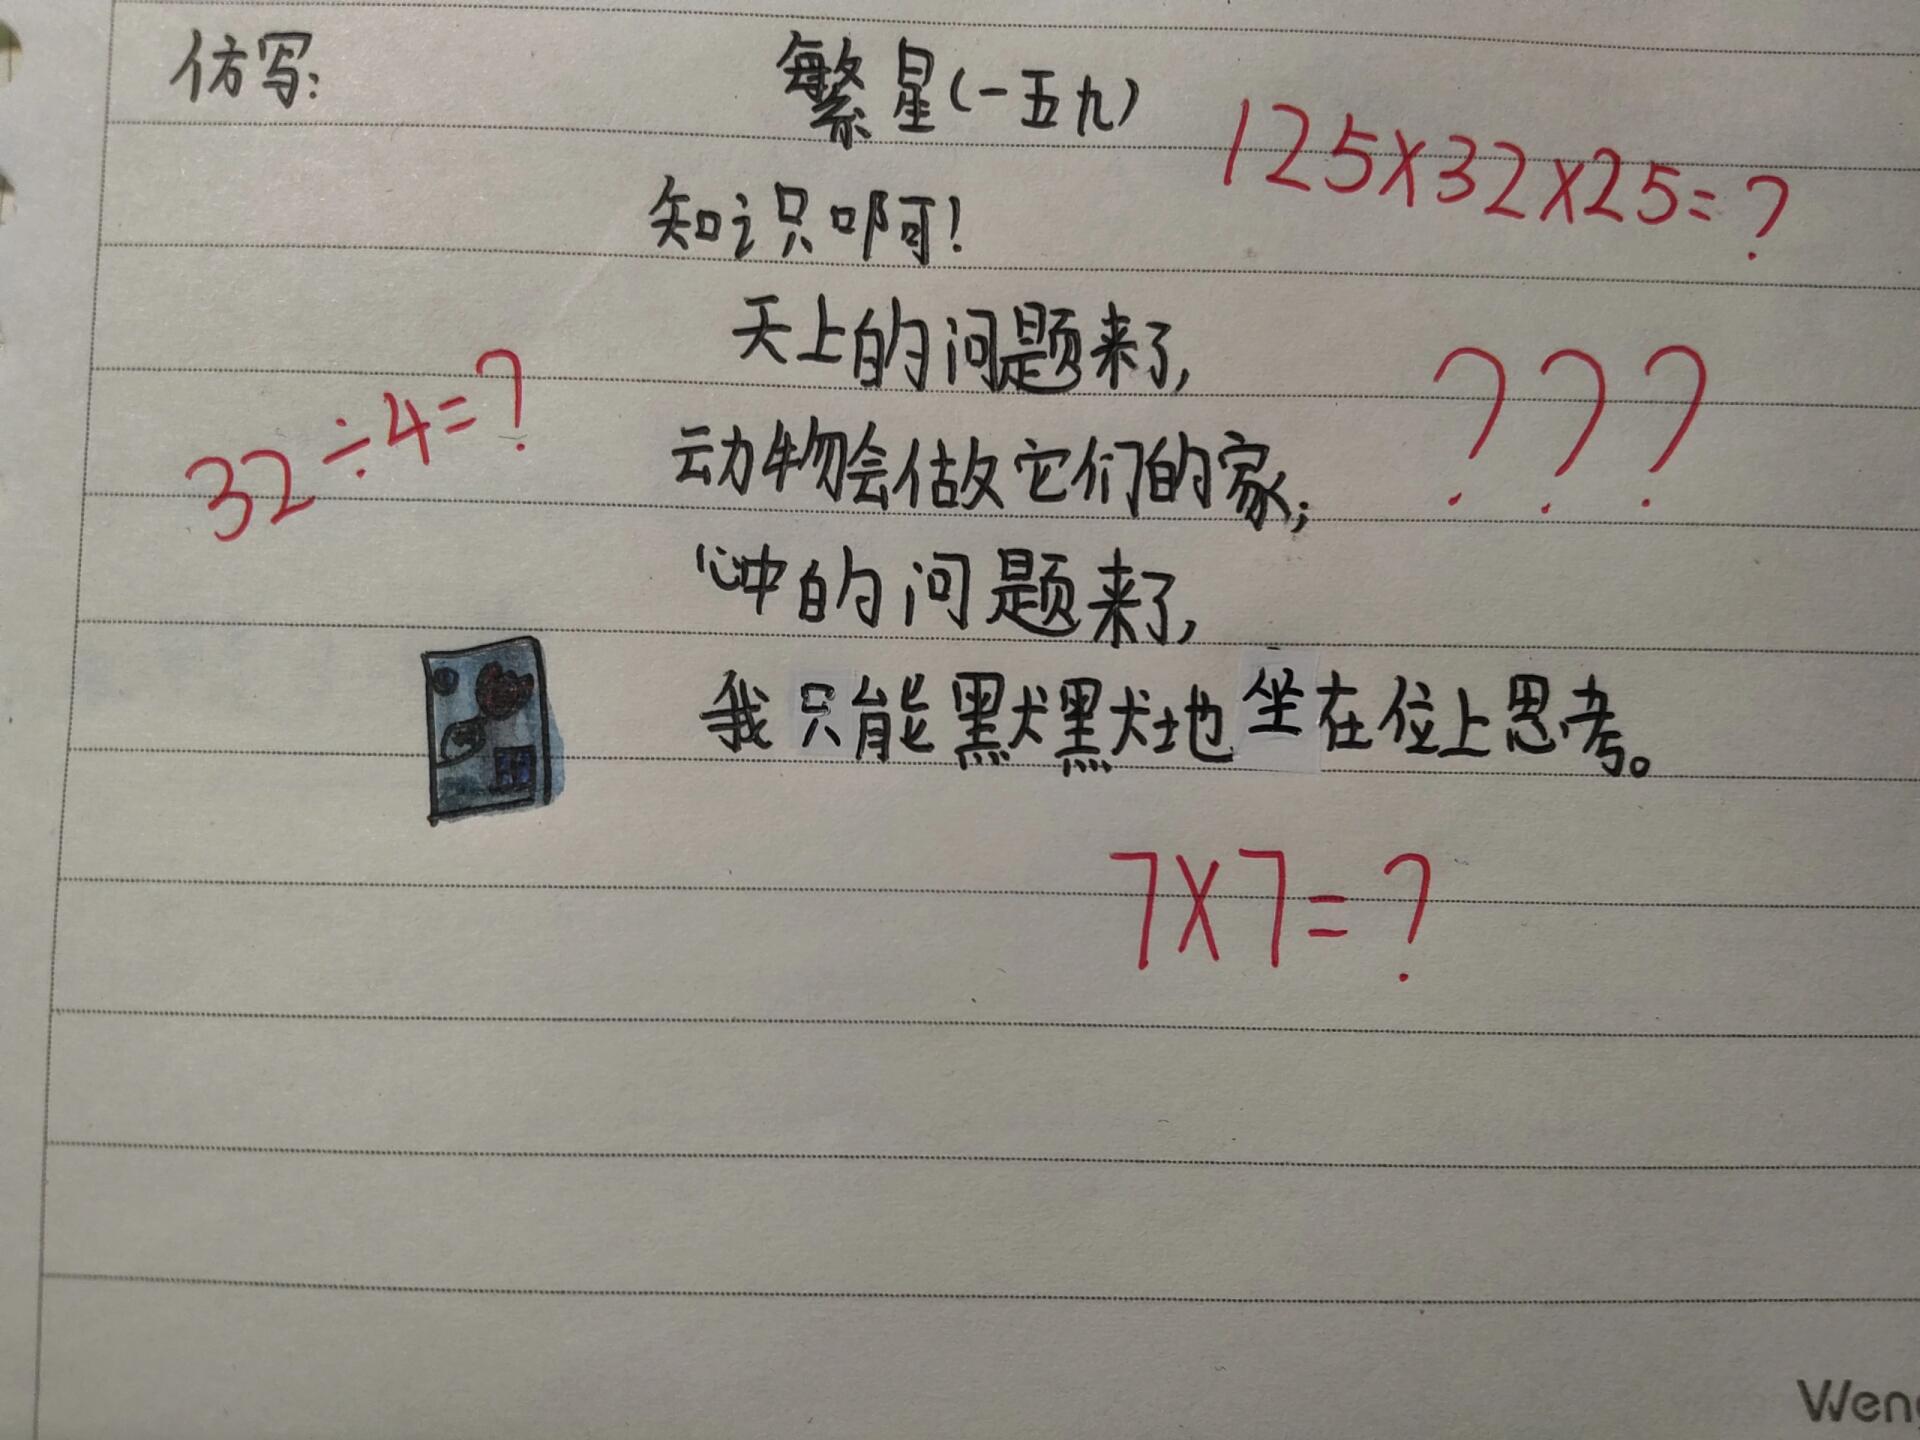 仿写:
繁星(一五九)
125×32×25=?
知识啊!
天上的问题来了,
???
32÷4=?
动物会做它们的家;
心中的问题来了,
我只能默默地坐在位上思考。
7×7=?